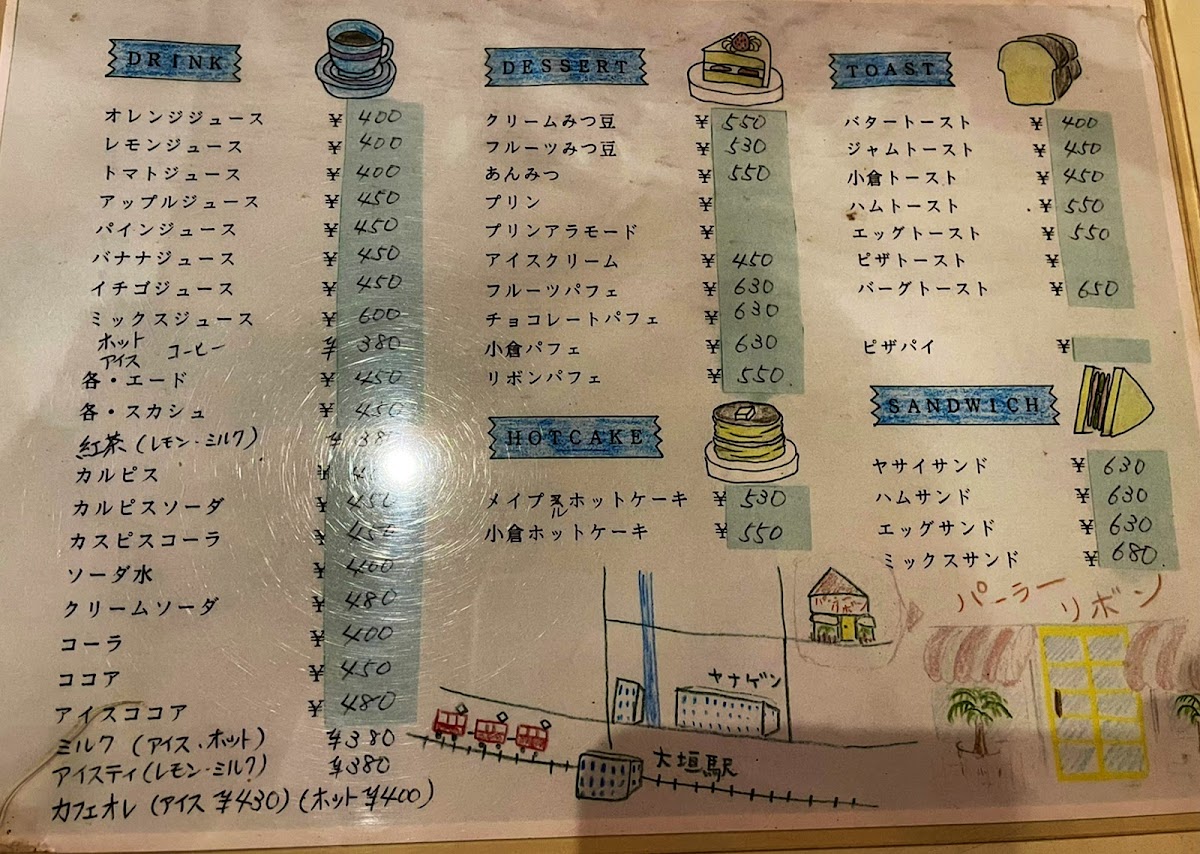 DRINK
オレンジジュース ¥ 400
レモンジュース ¥ 400
トマトジュース ¥ 400
アップルジュース ¥ 450
パインジュース ¥ 450
バナナジュース ¥ 450
イチゴジュース ¥ 450
ミックスジュース ¥ 600
ホット アイス コーヒー ¥ 380
各・エード ¥ 450
各・スカシュ ¥ 450
紅茶 (レモン・ミルク) ¥
カルピス ¥
カルピスソーダ ¥ 450
カスピスコーラ ¥ 450
ソーダ水 ¥ 400
クリームソーダ ¥ 480
コーラ ¥ 400
ココア ¥ 450
アイスココア ¥ 480
ミルク (アイス・ホット) ¥380
アイスティ(レモン・ミルク) ¥380
カフェオレ (アイス ¥430) (ホット ¥400)
DESSERT
クリームみつ豆 ¥ 550
フルーツみつ豆 ¥ 530
あんみつ ¥ 550
プリン ¥
プリンアラモード ¥
アイスクリーム ¥ 450
フルーツパフェ ¥ 630
チョコレートパフェ ¥ 630
小倉パフェ ¥ 630
リボンパフェ ¥ 550
HOTCAKE
メイプルホットケーキ ¥ 530
小倉ホットケーキ ¥ 550
TOAST
バタートースト ¥ 400
ジャムトースト ¥ 450
小倉トースト ¥ 450
ハムトースト ¥ 550
エッグトースト ¥ 550
ピザトースト ¥
バーグトースト ¥ 650
ピザパイ ¥
SANDWICH
ヤサイサンド ¥ 630
ハムサンド ¥ 630
エッグサンド ¥ 630
ミックスサンド ¥ 680
パーラー
リボン
パーラー
リボン
ヤナゲン
大垣駅